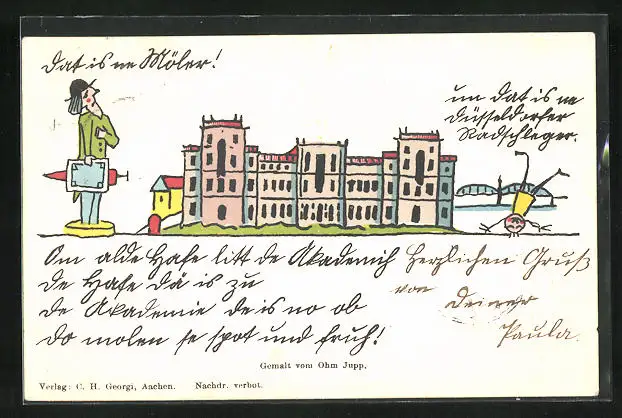 Dat is ne Möler!
un dat is ne
Düsseldorfer
Radschleger.
Om alde Hafe litt de Akademich
de Hafe dä is zu
de Akademie de is no ob
do molen se spot und fruh!
Herzlichen Gruß
von Deiner
Paula.
Gemalt vom Ohm Jupp.
Verlag: C. H. Georgi, Aachen. Nachdr. verbot.